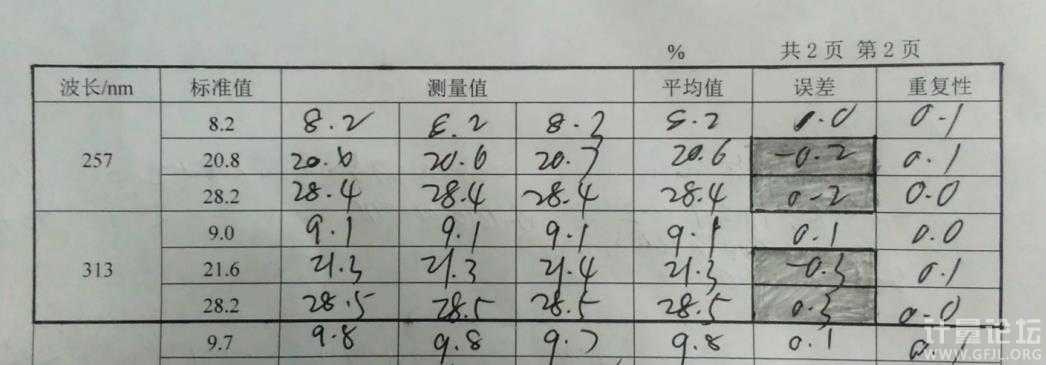 % 共2页 第2页
波长/nm 标准值 测量值 平均值 误差 重复性
8.2 8.2 8.2 8.3 8.2 0.0 0.1
257 20.8 20.6 20.6 20.7 20.6 -0.2 0.1
28.2 28.4 28.4 28.4 28.4 0.2 0.0
9.0 9.1 9.1 9.1 9.1 0.1 0.0
313 21.6 21.3 21.3 21.4 21.3 -0.3 0.1
28.2 28.5 28.5 28.5 28.5 0.3 0.0
9.7 9.8 9.8 9.7 9.8 0.1 0.1
计量论坛
WWW.GFJL.ORG